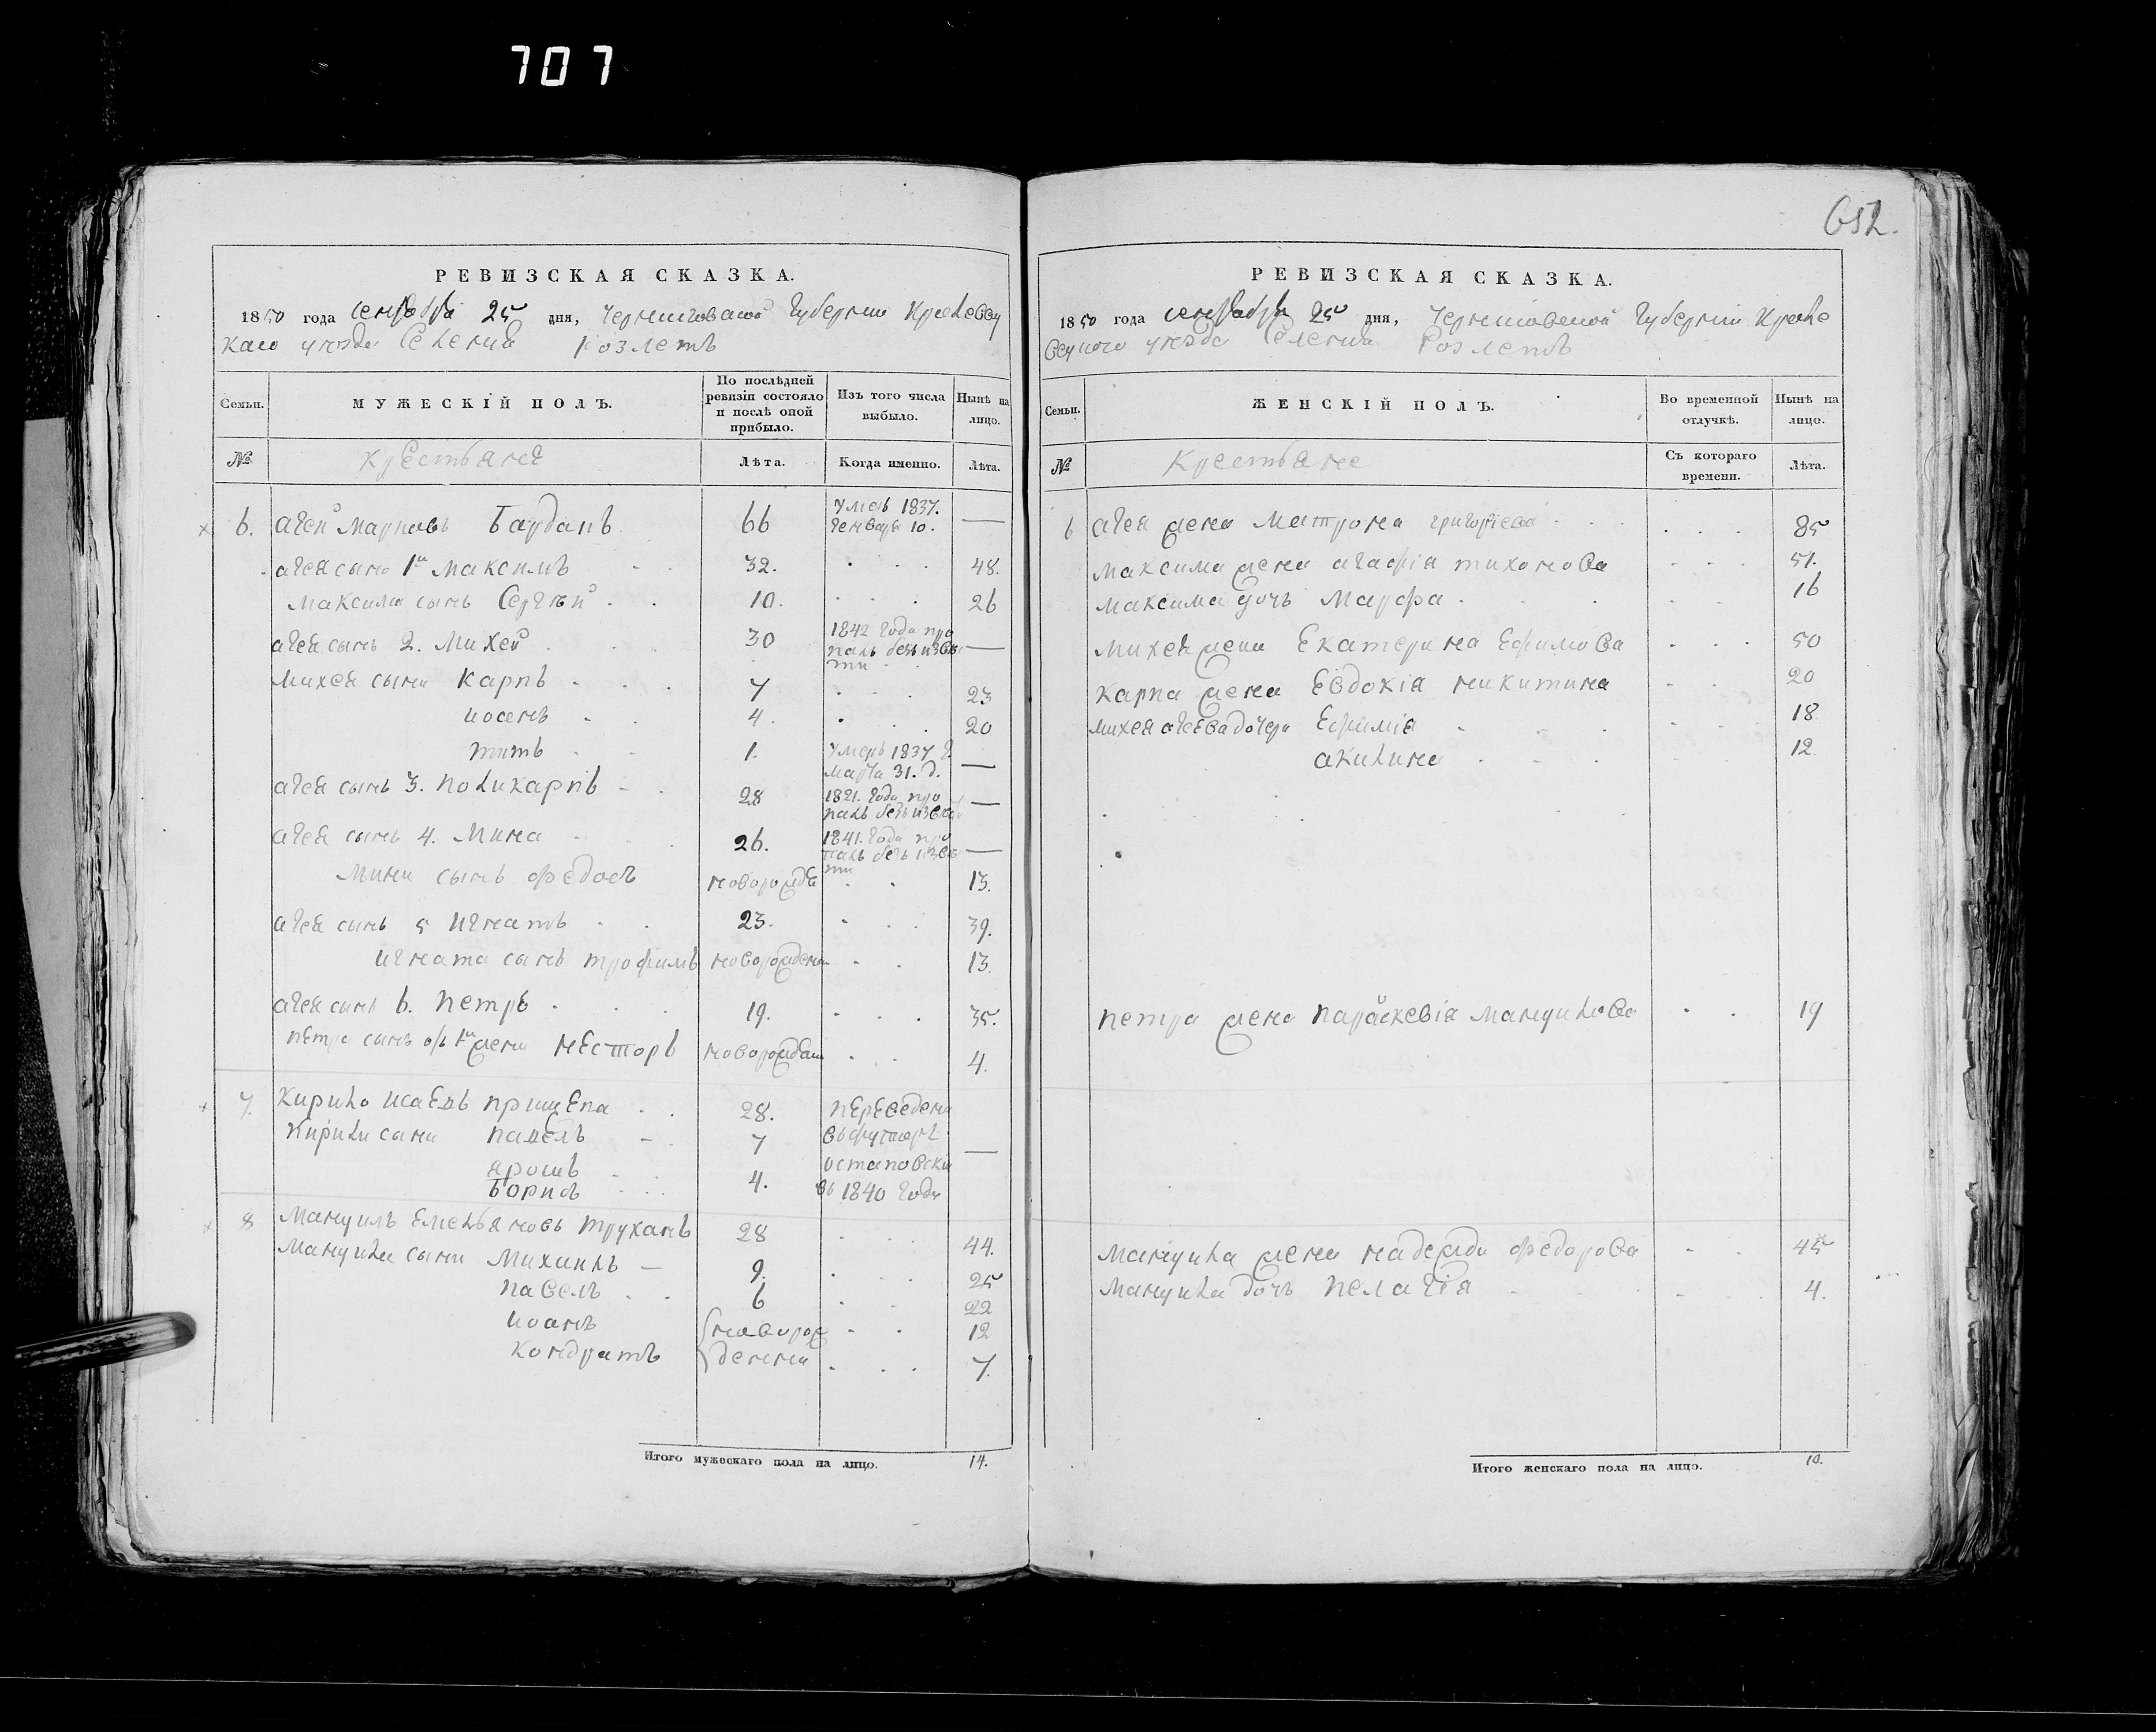 707
РЕВИЗСКАЯ СКАЗКА.
1850 года сентября 25 дня, Черниговской Губернии Кролевец
каго уезда Селения Розлетъ
Семьи. МУЖЕСКІЙ ПОЛЪ. По послѣдней ревизіи состояло и послѣ оной прибыло. Изъ того числа выбыло. Нынѣ на лицо.
№ Крестьяне Лѣта. Когда именно. Лѣта.
6. Агей Марковъ 66 умеръ 1837. Генваря 10. —
Агея сынъ 1й Максимъ 32. 48.
Максима сынъ Сергѣй 10. 26
Агея сынъ 2. Михей 30 1842 года пропалъ безъ извѣсти —
Михея сыны Карпъ 7 23
Иосепъ 4. 20
Титъ 1. умеръ 1837 г. Марта 31. д. —
Агея сынъ 3. Поликарпъ 28 1821. года пропалъ безъ —
Агея сынъ 4. Мина 26. 1841. года пропалъ безъ извѣсти —
Мины сынъ Федосъ новорожде 13.
Агея сынъ 5 Игнатъ 23. 39.
Игната сынъ Трофимъ новорожден 13.
Агея сынъ 6. Петръ 19. 35.
Петра сынъ отъ 1й жены Несторъ 4.
7. Кирило Исаевъ Прищепа 28. переведены
Кирилы сыны Павелъ 7 въ футоръ —
Ярошъ Остаповски
Борисъ 4. въ 1840 году
8 Мануилъ Емельяновъ Труханъ 28 44.
Мануила сыны Михаилъ — 9. 25
Павелъ 6 22
Иоанъ новорож 12
Кондратъ денны 7.
Итого мужескаго пола на лицо. 14.
652.
РЕВИЗСКАЯ СКАЗКА.
1850 года сентября 25 дня, Черниговской Губернии Кроле
вецкого уезда Селения Розлетъ
Семьи. ЖЕНСКІЙ ПОЛЪ. Во временной отлучкѣ. Нынѣ на лицо.
№ Крестьяне Съ котораго времени. Лѣта.
6 Агея жена Матрона Григорьева 85
Максима жена Агафія Тихонова 51.
Максима дочь Марфа 16
Михея жена Екатерина Ефимова 50
Карпа жена Евдокія Никитина 20
Михея Агеева дочери Ефимія 18
Акилина 12
Петра жена Параскевія Мануилова 19
Мануила жена Надежда Федорова 45
Мануила дочь Пелагія 4.
Итого женскаго пола на лицо. 10.